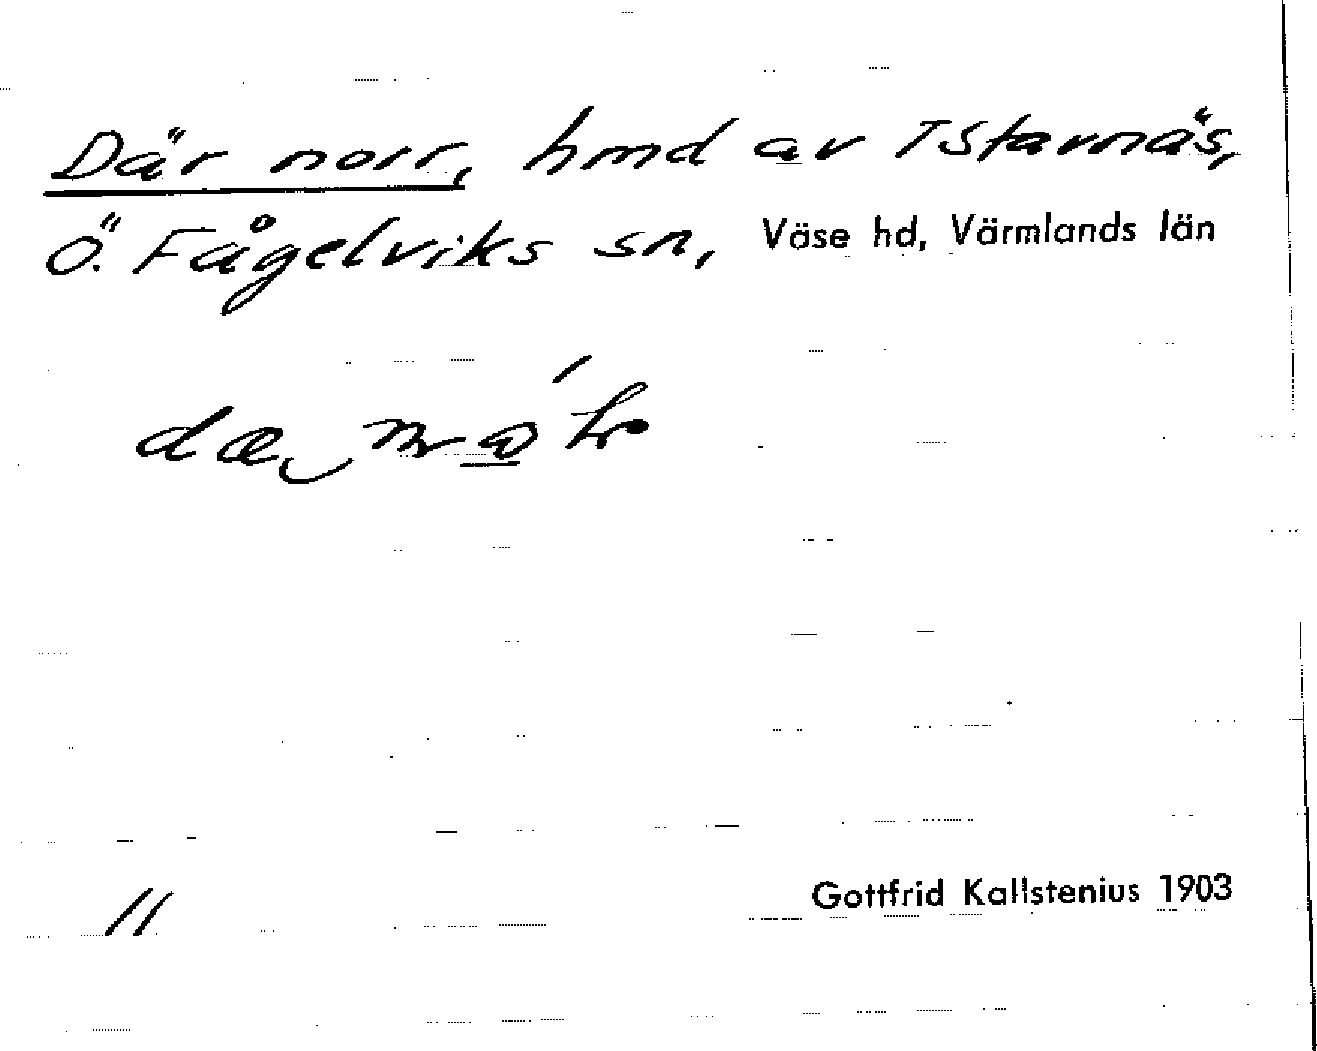 Där norr, hmd av I Stavnäs,
Ö. Fågelviks sn, Väse hd, Värmlands län
11
Gottfrid Kallstenius 1903